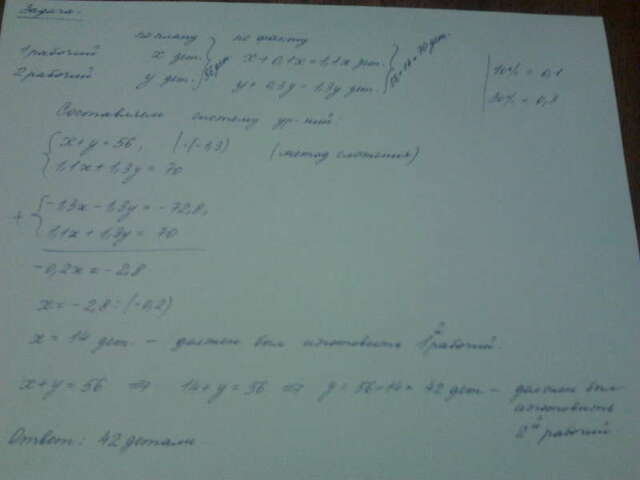 Задача.
по плану по факту
1 рабочий x дет. x + 0,1x = 1,1x дет. 10% = 0,1
2 рабочий y дет. 56 дет y + 0,3y = 1,3y дет. 56+14=70 дет. 30% = 0,3
Составляем систему ур-ний:
x+y=56, | ·(-1,3) (метод сложения)
1,1x+1,3y=70
+ -1,3x-1,3y=-72,8,
1,1x+1,3y=70
-0,2x=-2,8
x=-2,8:(-0,2)
x=14 дет. – должен был изготовить 1й рабочий.
x+y=56 ⇒ 14+y=56 ⇒ y=56-14=42 дет – должен был
изготовить
2й рабочий.
Ответ: 42 детали